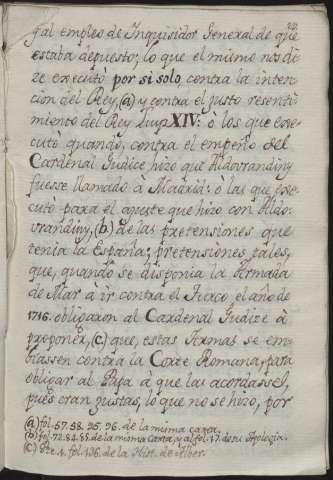 gal empleo de Inquisidor General de que
estaba depuesto; lo que el mismo nos di
ze executó por si solo, contra la inten
cion del Rey, (a) y contra el justo resenti
miento del Rey Luis XIV: ò los que exe
cutò quando, contra el empeño del
Cardenal Judice hizo que Aldovrandiny
fuesse llamado à Madrid: ò las que exe
cutò para el ajuste que hizo con Aldo
vrandiny, (b) de las pretensiones que
tenia la España; pretensiones tales,
que, quando se disponia la Armada
de Mar à ir contra el Turco el año de
1716. obligaron al Cardenal Judice à
proponer, (c) que, estas Armas se em
bíassen contra la Corte Romana, para
obligar al Papa à que las acordasse,
pues eran justas; lo que no se hizo, por
(a) fol. 57. 58. 95. 96. de la misma carta.
(b) fol. 72. 84. 85. de la misma Carta, y al fol. 17. de su Apologia.
(c) Pte. 1. fol. 136. de la Hist. de Alber.